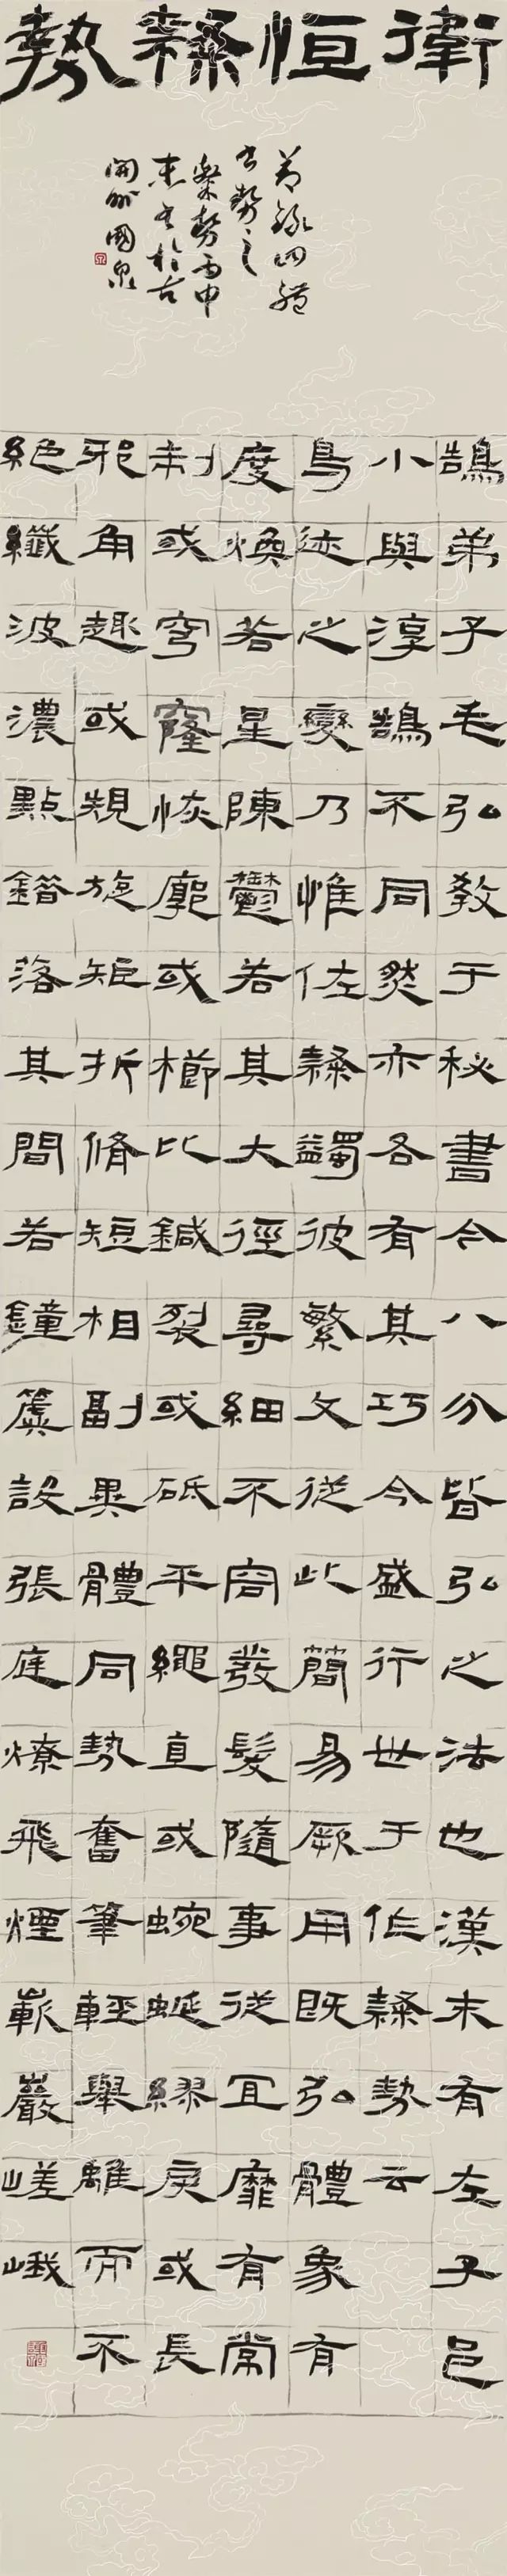 衛恒隸勢
節錄四體
書勢之
隸勢丙申
末書於古
開州國泉
鵠弟子毛弘教于秘書今八分皆弘之法也漢末有左子邑
小與淳鵠不同然亦各有其巧今盛行世于作隸勢云
鳥迹之變乃惟佐隸蠲彼繁文從此簡易厥用既弘體象有
度煥若星陳鬱若其大徑尋細不容發髮隨事從宜靡有常
制或穹窿恢廓或櫛比鍼裂或砥平繩直或蜿蜒繆戾或長
邪角趣或規旋矩折脩短相副異體同勢奮筆輕舉離而不
絕纖波濃點錯落其間若鐘簴設張庭燎飛煙嶄巖嵯峨